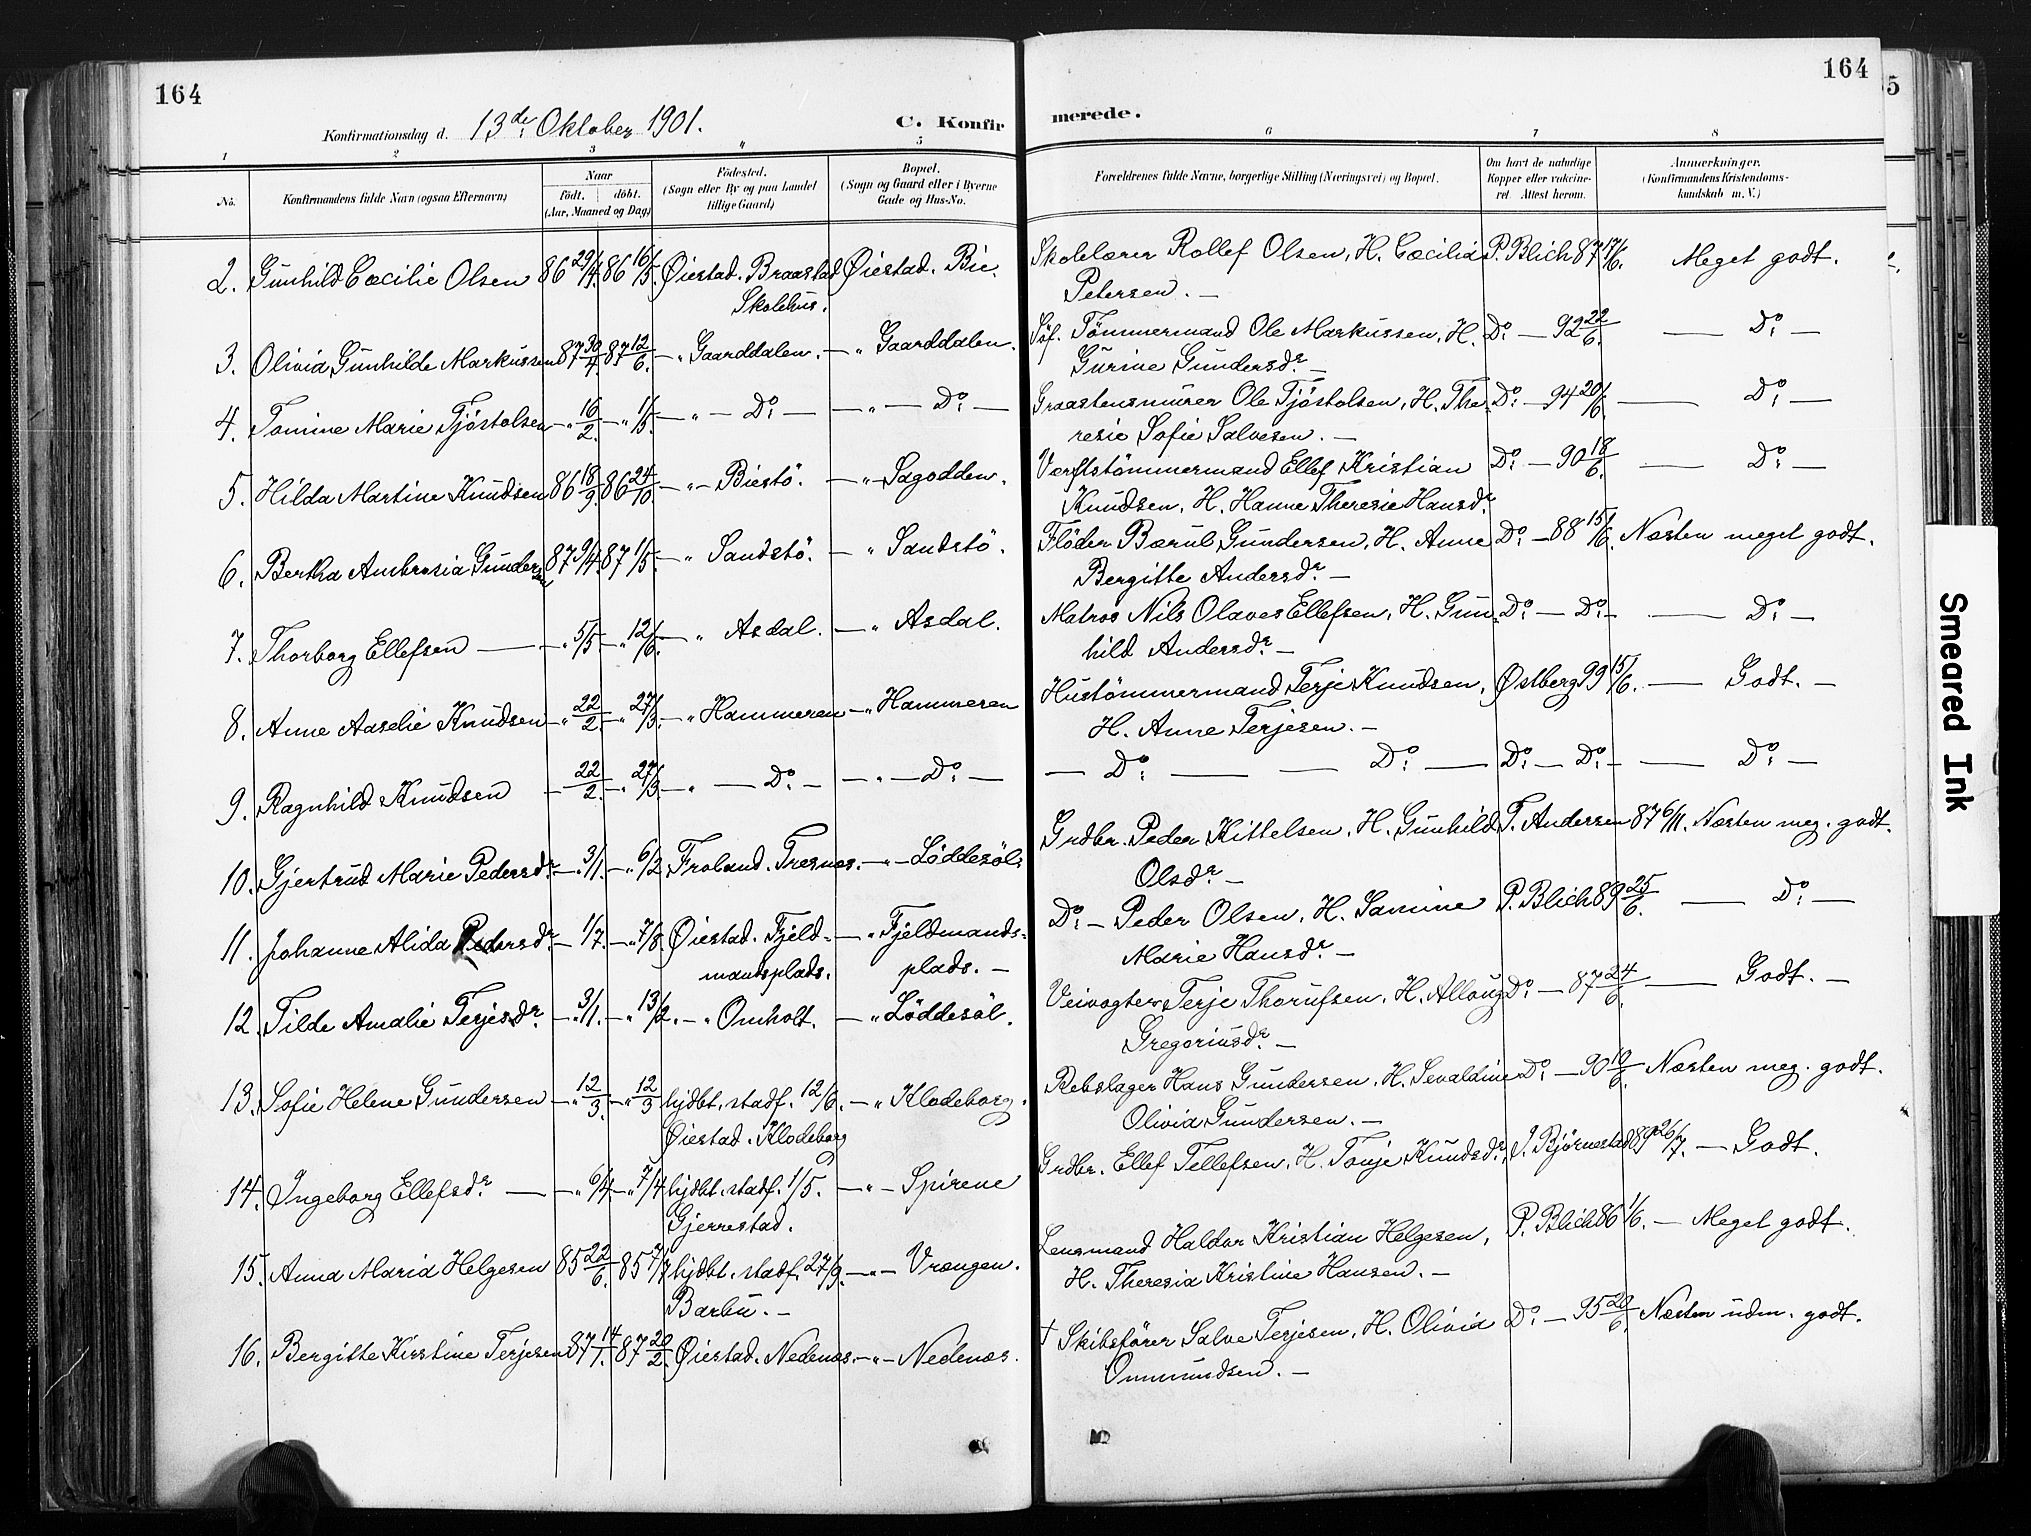 164
Konfirmationsdag d. 13de Oktober 1901.
C. Konfir
1 2 3 " 5
No.
Konfirmandens fulde Navn (ogsaa Efternavn)
Naar
födt. döbt.
(Aar, Maaned og Dag)
Födested.
(Sogn eller By og paa Landet
tillige Gaard)
Bopæl.
(Sogn og Gaard eller i Byerne
Gade og Hus-No.
2. Gunhild Cæcilie Olsen 86 29/4. 86 16/5. Øiestad. Braastad Øiestad. Bie.
Skolehus.
3. Olivia Gunhilde Markussen 87 30/4. 87 12/6. — " Gaarddalen. — " Gaarddalen.
4. Tomine Marie Tjöstolsen — " 16/2. — " 1/5. — " — Do. — — " — Do. —
5. Hilda Martine Knudsen 86 18/9. 86 24/10. — " — Biestö. — " — Sagodden.
6. Bertha Ambrosia Gunder 87 9/4. 87 1/5. — " Sandstö. — " Sandstö.
sen
7. Thorborg Ellefsen — — " 5/5 — " 12/6. — " Asdal. — " Asdal.
8. Anne Aaselie Knudsen — " 22/2. — " 27/3. — " Hammeren — " Hammeren
9. Ragnhild Knudsen — 22/2. — " 27/3. — " — Do. — — " — Do. —
10. Gjertrud Marie Pedersdr. — " 3/1. — " 6/2 Froland. Tresnes. — " — Löddesöl.
11. Johanne Alida Pedersdr. — 1/7. — " 7/8. Øiestad. Fjeld- — " Fjeldmands-
mandsplads. plads. —
12. Tilde Amalie Terjesdr. — " 3/1. — " 13/2. — " Omholt. — " Löddesöl.
13. Sofie Helene Gundersen — " 12/3. — " 12/3 hjdbt. stadf. 12/6. — " Klodeborg.
Øiestad. Klodeborg
14. Ingeborg Ellefsdr. — — " 6/4 — " 7/4 hjdbt. stadf. 1/5. — " — Spirene
Gjerrestad.
15. Anna Maria Helgesen 85 22/6. 85 7/7 hjdbt. stadf. 27/9. — " — Vrengen.
Barbu. —
16. Bergitte Kirstine Terjesen 87 14/1. 87 20/2. Øiestad. Nedenæs. — " — Nedenæs.
164
5
merede.
6 7 8
Forældrenes fulde Navne, borgerlige Stilling (Næringsvei) og Bopæl.
Om havt de naturlige
Kopper eller vakcine-
ret. Attest herom.
Anmærkninger.
(Konfirmandens Kristendoms-
kundskab m. V.)
Skolelærer Rollef Olsen, H. Cæcilia P. Blich 87 17/6. Meget godt.
Petersen. —
Söf. Tømmermand Ole Markussen, H. Do. — 92 22/6. — Do. —
Gurine Gundersdr. —
Graastensmurer Ole Tjöstolsen, H. The- Do. — 94 20/6. — Do. —
resie Sofie Salvesen. —
Verftstömmermand Ellef Kristian Do. — 90 18/6. — Do. —
Knudsen, H. Hanne Theresie Hansdr.
Flöder Bærul Gundersen, H. Anne Do. — 88 15/6. Næsten meget godt.
Bergitte Andersdr. —
Matros Nils Olaves Ellefsen, H. Gun- Do. — Do. — — Do. —
hild Andersdr. —
Hustömmermand Terje Knudsen, Østberg 99 15/6. — Godt. —
H. Anne Terjesen. —
— Do. — — Do. — Do. — Do. — — Do. —
Grdbr. Peder Kittelsen, H. Gunhild T. Andersen 87 6/11. Næsten meg. godt.
Olsdr. —
Do. — Peder Olsen, H. Samine P. Blich 89 25/6. — Do. —
Marie Hansdr. —
Veivogter Terje Thorufsen, H. Alloug Do. — 87 24/6. — Godt. —
Gregoriusdr. —
Rebslager Hans Gundersen, H. Sevaldine Do. — 90 10/6. Næsten meg. godt.
Olivia Gundersen. —
Grdbr. Ellef Tellefsen, H. Tonje Knudsdr. J. Bjørnestad 89 26/7. — Godt.
Lensmand Haldor Kristian Helgesen, P. Blich 86 1/6. — Meget godt.
H. Theresia Kristine Hansen. —
† Skibsförer Salve Terjesen, H. Olivia Do. — 95 20/6. Næsten udm. godt.
Ommundsen. —
Smeared Ink